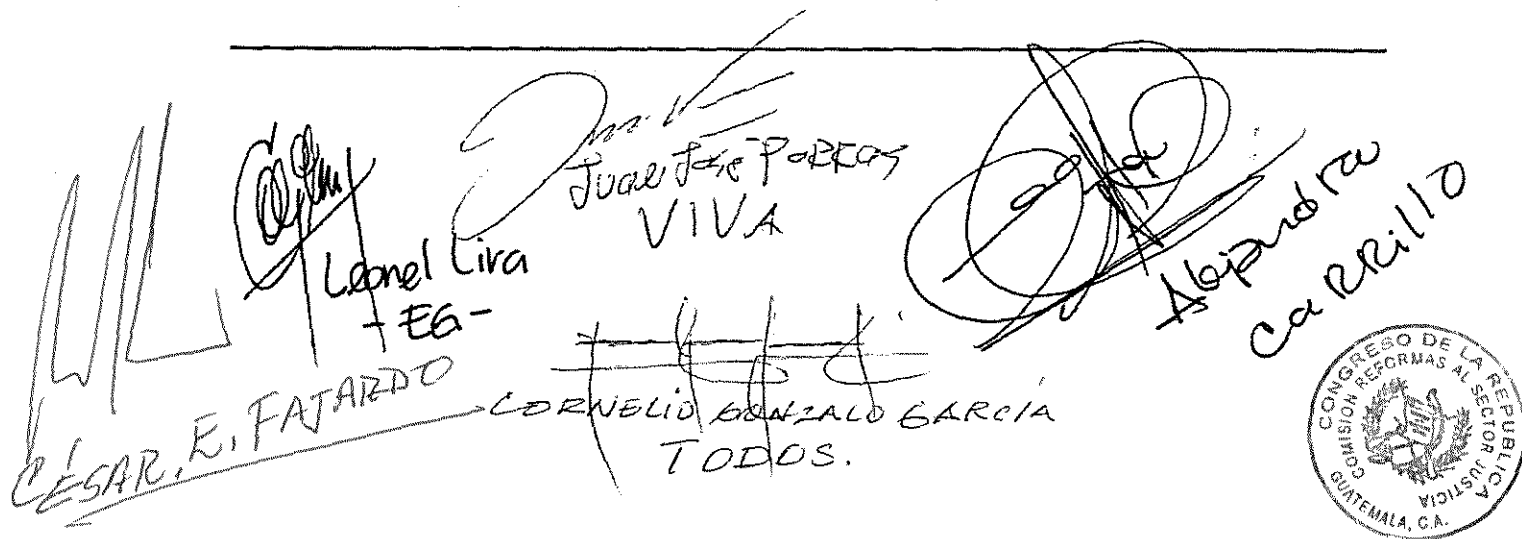 Juan José PORRAS
VIVA
Leonel Lira
-EG-
Alejandra
CARRillo
CÉSAR, E. FAJARDO
CORNELIO GONZALO GARCÍA
TODOS.
CONGRESO DE LA REPUBLICA
COMISION REFORMAS AL SECTOR JUSTICIA
GUATEMALA, C.A.